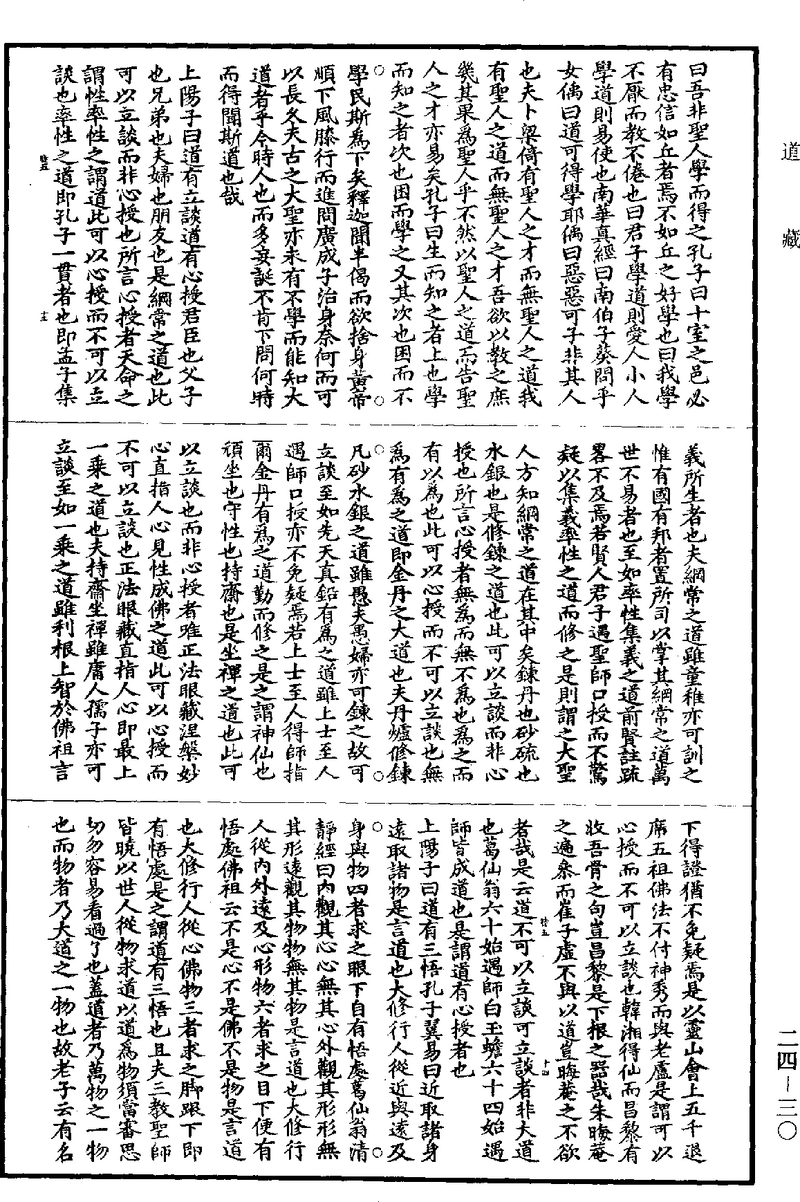 道藏
曰吾非聖人學而得之孔子曰十室之邑必
有忠信如丘者焉不如丘之好學也曰我學
不厭而教不倦也曰君子學道則愛人小人
學道則易使也南華真經曰南伯子葵問乎
女偊曰道可得學耶偊曰惡惡可子非其人
也夫卜梁倚有聖人之才而無聖人之道我
有聖人之道而無聖人之才吾欲以教之庶
幾其果為聖人乎不然以聖人之道而告聖
人之才亦易矣孔子曰生而知之者上也學
而知之者次也困而學之又其次也困而不
學民斯為下矣釋迦聞半偈而欲捨身黃帝
順下風膝行而進問廣成子治身奈何而可
以長久夫古之大聖亦未有不學而能知大
道者乎今時人也而多妄誕不肯下問何時
而得聞斯道也哉
上陽子曰道有立談道有心授君臣也父子
也兄弟也夫婦也朋友也是綱常之道也此
可以立談而非心授也所言心授者天命之
謂性率性之謂道此可以心授而不可以立
談也率性之道即孔子一貫者也即孟子集
義所生者也夫綱常之道雖童稚亦可訓之
惟有國有邦者置所司以掌其綱常之道萬
世不易者也至如率性集義之道前賢註疏
畧不及焉若賢人君子遇聖師口授而不驚
疑以集義率性之道而修之是則謂之大聖
人方知綱常之道在其中矣鍊丹也砂硫也
水銀也是修鍊之道也此可以立談而非心
授也所言心授者無為而無不為也為之而
有以為也此可以心授而不可以立談也無
為有為之道即金丹之大道也夫丹爐修鍊
凡砂水銀之道雖愚夫愚婦亦可鍊之故可
立談至如先天真鉛有為之道雖上士至人
遇師口授亦不免疑焉若上士至人得師指
爾金丹有為之道勤而修之是之謂神仙也
頑坐也守性也持齋也是坐禪之道也此可
以立談也而非心授者唯正法眼藏涅槃妙
心直指人心見性成佛之道此可以心授而
不可以立談也正法眼藏直指人心即最上
一乘之道也夫持齋坐禪雖庸人孺子亦可
立談至如一乘之道雖利根上智於佛祖言
下得證猶不免疑焉是以靈山會上五千退
席五祖佛法不付神秀而與老盧是謂可以
心授而不可以立談也韓湘得仙而昌黎有
收吾骨之句豈昌黎是下根之器哉朱晦菴
之遍參而崔子虛不與以道豈晦菴之不欲
者哉是云道不可以立談可立談者非大道
也葛仙翁六十始遇師白玉蟾六十四始遇
師皆成道也是謂道有心授者也
上陽子曰道有三悟孔子翼易曰近取諸身
遠取諸物是言道也大修行人從近與遠及
身與物四者求之眼下自有悟處葛仙翁清
靜經曰內觀其心心無其心外觀其形形無
其形遠觀其物物無其物是言道也大修行
人從內外遠及心形物六者求之目下便有
悟處佛祖云不是心不是佛不是物是言道
也大修行人從心佛物三者求之脚跟下即
有悟處是之謂道有三悟也且夫三教聖師
皆曉以世人從物求道以道為物須當審思
切勿容易看過了也蓋道者乃萬物之一物
也而物者乃大道之一物也故老子云有名
二四-三〇